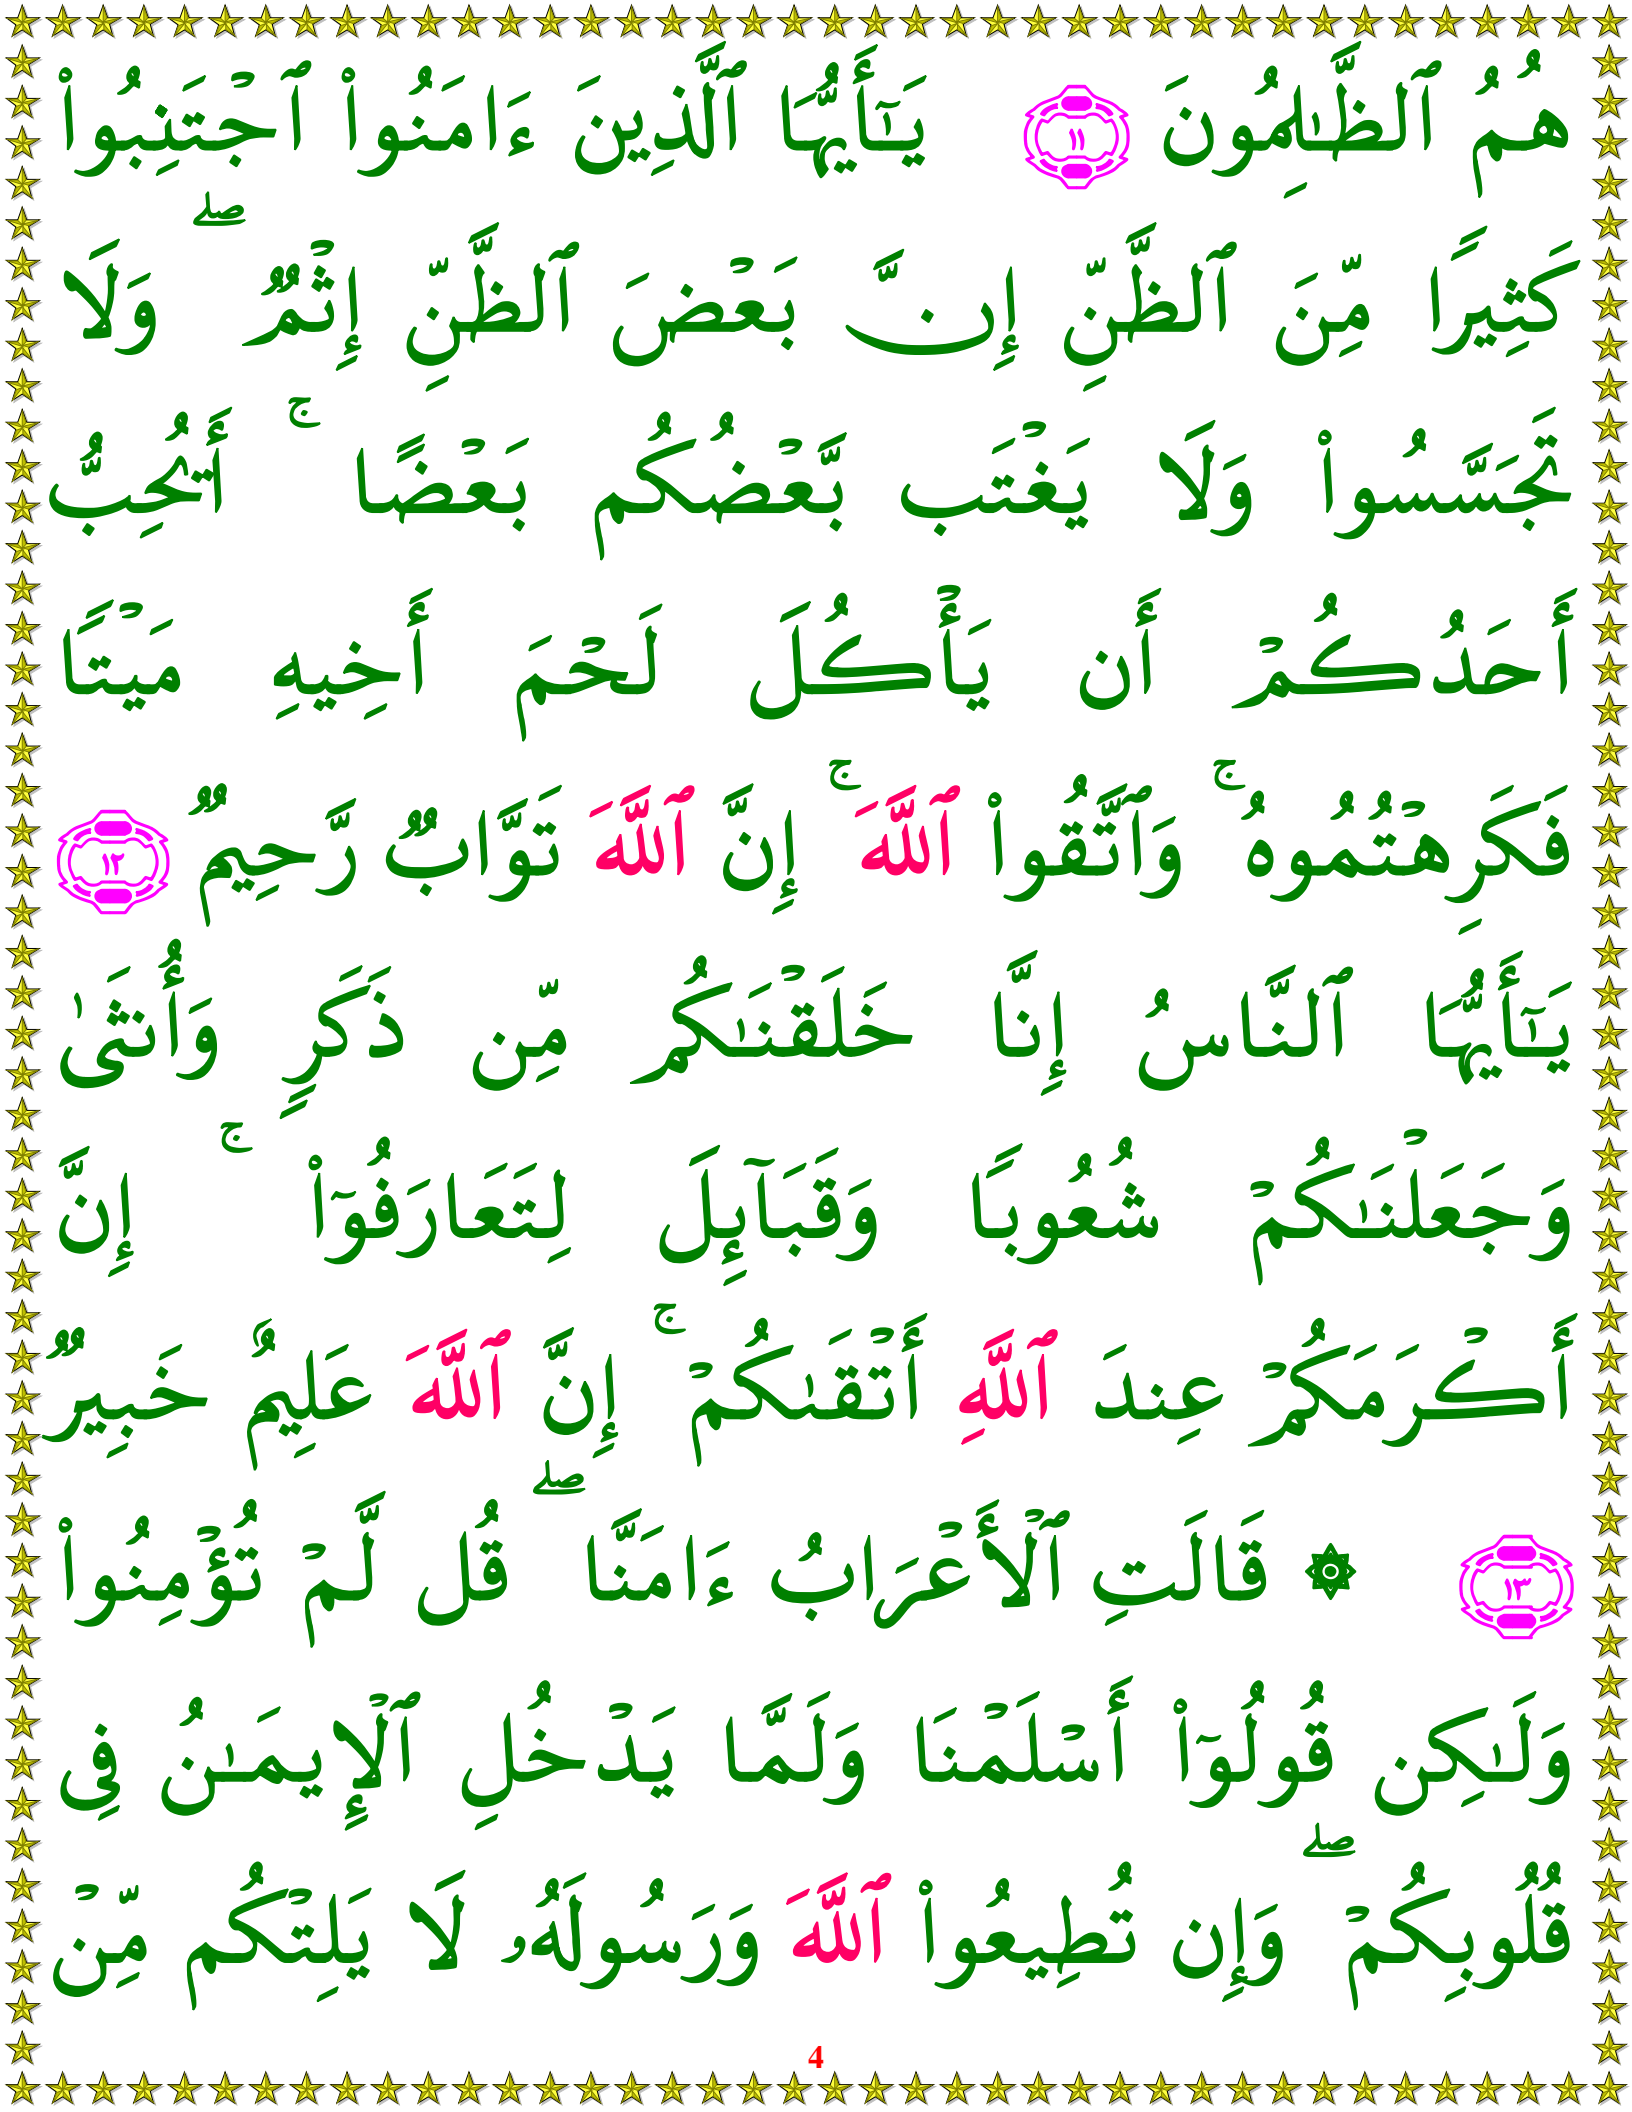 هُمُ ٱلظَّـٰلِمُونَ ١١ يَـٰٓأَيُّهَا ٱلَّذِينَ ءَامَنُوا۟ ٱجْتَنِبُوا۟
كَثِيرًا مِّنَ ٱلظَّنِّ إِنَّ بَعْضَ ٱلظَّنِّ إِثْمٌ ۖ وَلَا
تَجَسَّسُوا۟ وَلَا يَغْتَب بَّعْضُكُم بَعْضًا ۚ أَيُحِبُّ
أَحَدُكُمْ أَن يَأْكُلَ لَحْمَ أَخِيهِ مَيْتًا
فَكَرِهْتُمُوهُ ۚ وَٱتَّقُوا۟ ٱللَّهَ ۚ إِنَّ ٱللَّهَ تَوَّابٌ رَّحِيمٌ ١٢
يَـٰٓأَيُّهَا ٱلنَّاسُ إِنَّا خَلَقْنَـٰكُم مِّن ذَكَرٍ وَأُنثَىٰ
وَجَعَلْنَـٰكُمْ شُعُوبًا وَقَبَآئِلَ لِتَعَارَفُوٓا۟ ۚ إِنَّ
أَكْرَمَكُمْ عِندَ ٱللَّهِ أَتْقَىٰكُمْ ۚ إِنَّ ٱللَّهَ عَلِيمٌ خَبِيرٌ
١٣ ۞ قَالَتِ ٱلْأَعْرَابُ ءَامَنَّا ۖ قُل لَّمْ تُؤْمِنُوا۟
وَلَـٰكِن قُولُوٓا۟ أَسْلَمْنَا وَلَمَّا يَدْخُلِ ٱلْإِيمَـٰنُ فِى
قُلُوبِكُمْ ۖ وَإِن تُطِيعُوا۟ ٱللَّهَ وَرَسُولَهُۥ لَا يَلِتْكُم مِّنْ
4